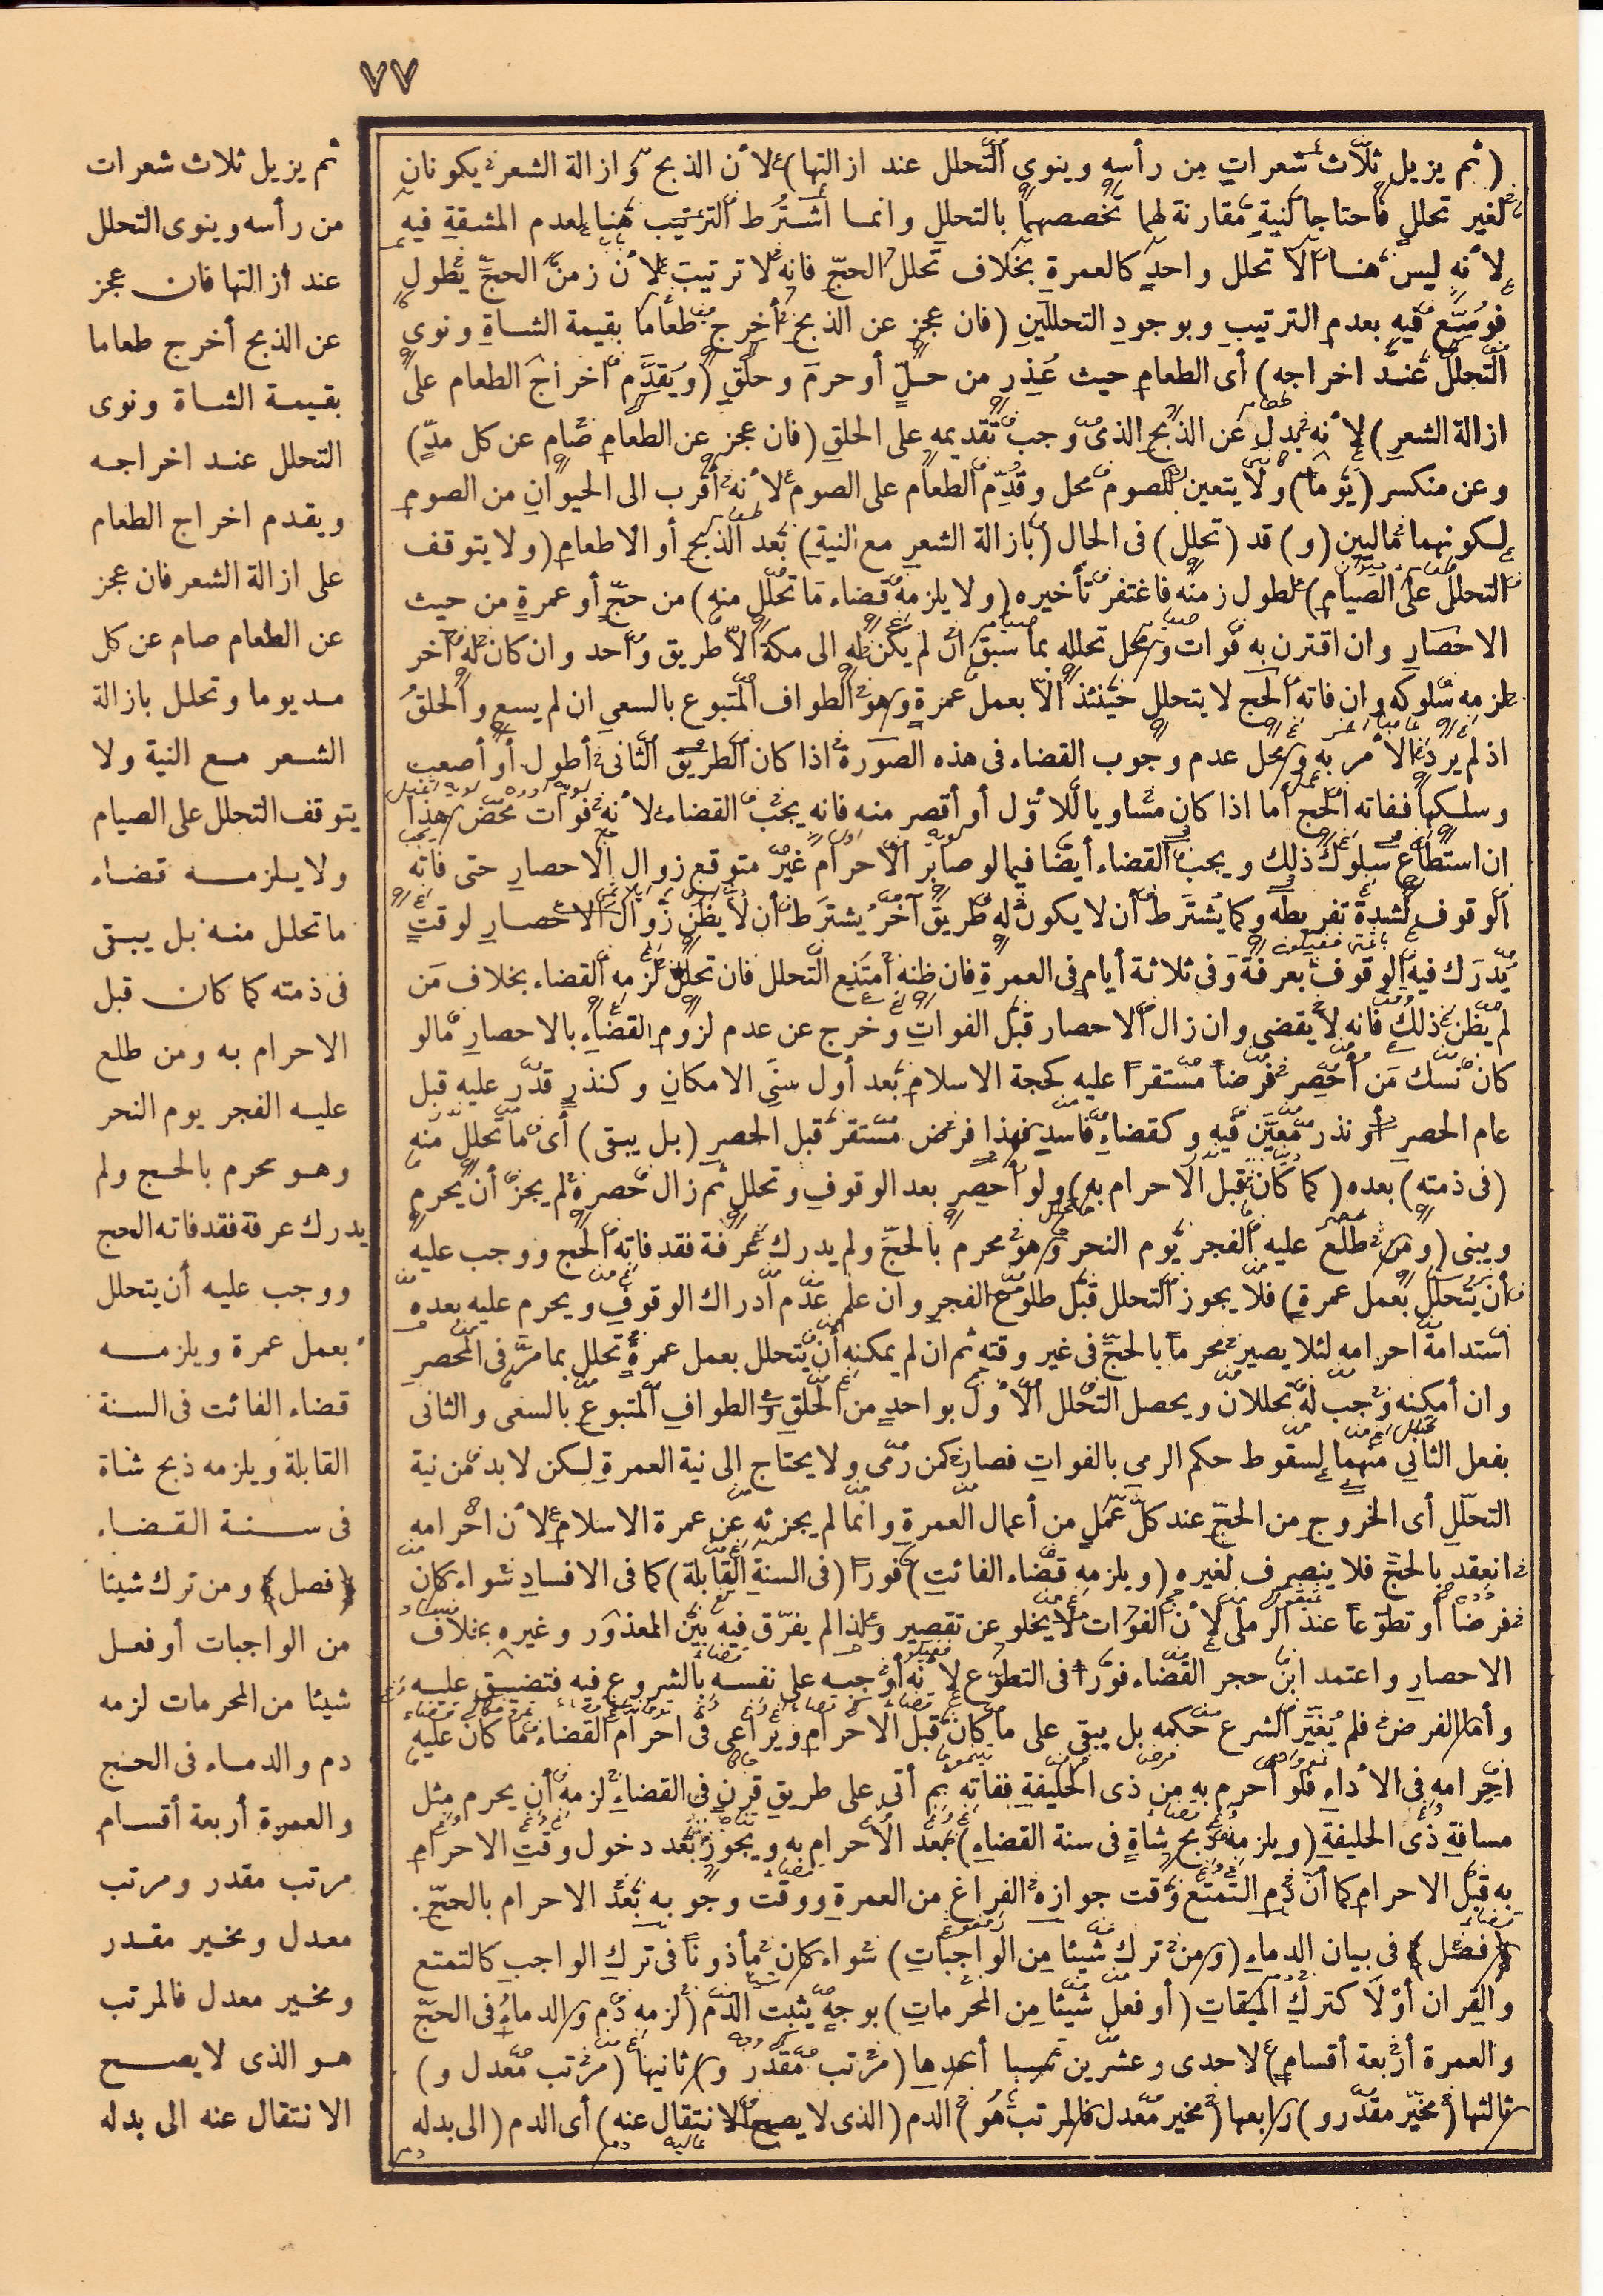 ٧٧
(ثم يزيل ثلاث شعرات من رأسه وينوي التحلل عند ازالتها) لأن الذبح وازالة الشعر يكونان
لغير تحلل فاحتاجا لنية مقارنة لهما تخصصهما بالتحلل وانما اشترط الترتيب هنا لعدم المشقة فيه
لأنه ليس هنا الا تحلل واحد كالعمرة بخلاف تحلل الحج فانه لا ترتيب لأن زمن الحج يطول
فوسّع فيه بعدم الترتيب وبوجود التحللين (فان عجز عن الذبح أخرج طعاما بقيمة الشاة ونوى
التحلل عند اخراجه) أى الطعام حيث عذر من حل أو حرم وحلق (ويقدّم اخراج الطعام على
ازالة الشعر) لأنه بدل عن الذبح الذى وجب تقديمه على الحلق (فان عجز عن الطعام صام عن كل مدّ)
وعن منكسر (يوما) ولا يتعين للصوم محل وقدّم الطعام على الصوم لأنه أقرب الى الحيوان من الصوم
لكونهما ماليين (و) قد (تحلل) فى الحال (بازالة الشعر مع النية) بعد الذبح أو الاطعام (ولا يتوقف
التحلل على الصيام) لطول زمنه فاغتفر تأخيره (ولا يلزمه قضاء ما تحلل منه) من حجّ أو عمرة من حيث
الاحصار وان اقترن به فوات ومحل تحلله بما سبق ان لم يكن له الى مكة الا طريق واحد وان كان له آخر
لزمه سلوكه وان فاته الحج لا يتحلل حينئذ الا بعمل عمرة وهو الطواف المتبوع بالسعي ان لم يسع والحلق
اذ لم يرد الأمر به ومحل عدم وجوب القضاء فى هذه الصورة اذا كان الطريق الثانى أطول أو أصعب
وسلكها ففاته الحج أما اذا كان مساويا للأوّل أو أقصر منه فانه يجب القضاء لأنه فوات محض هذا
ان استطاع سلوك ذلك ويجب القضاء أيضا فيما لو صابر الاحرام غير متوقع زوال الاحصار حتى فاته
الوقوف لشدة تفريطه وكما يشترط أن لا يكون له طريق آخر يشترط أن لا يظن زوال الاحصار لوقت
يدرك فيه الوقوف بعرفة وفى ثلاثة أيام فى العمرة فان ظنه امتنع التحلل فان تحلل لزمه القضاء بخلاف من
لم يظن ذلك فانه لا يقضى وان زال الاحصار قبل الفوات وخرج عن عدم لزوم القضاء بالاحصار مالو
كان نسك من أحصر فرضا مستقرا عليه كحجة الاسلام بعد أول سنى الامكان وكنذر قدّر عليه قبل
عام الحصر أو نذر معيّن فيه وكقضاء فاسد فهذا فرض مستقر قبل الحصر (بل يبقى) أى ما تحلل منه
(فى ذمته) بعده (كما كان قبل الاحرام به) ولو أحصر بعد الوقوف وتحلل ثم زال حصره لم يجز أن يحرم
ويبنى (ومن طلع عليه الفجر يوم النحر وهو محرم بالحجّ ولم يدرك عرفة فقد فاته الحج ووجب عليه
أن يتحلل بعمل عمرة) فلا يجوز التحلل قبل طلوع الفجر وان علم عدم ادراك الوقوف ويحرم عليه بعده
استدامة احرامه لئلا يصير محرما بالحجّ فى غير وقته ثم ان لم يمكنه أن يتحلل بعمل عمرة تحلل بما مرّ فى المحصر
وان أمكنه وجب له تحللان ويحصل التحلل الأول بواحد من الحلق والطواف المتبوع بالسعى والثانى
بفعل الثاني منهما لسقوط حكم الرمي بالفوات فصار كمن رمى ولا يحتاج الى نية العمرة لكن لا بد من نية
التحلّل أى الخروج من الحجّ عند كل عمل من أعمال العمرة وانما لم يجزئه عن عمرة الاسلام لأن احرامه
انعقد بالحجّ فلا ينصرف لغيره (ويلزمه قضاء الفائت) فورا (فى السنة القابلة) كما فى الافساد سواء كان
فرضا أو تطوّعا عند الرملى لأن الفوات لا يخلو عن تقصير ولذا لم يفرّق فيه بين المعذور وغيره بخلاف
الاحصار واعتمد ابن حجر القضاء فورا فى التطوّع لأنه أوجبه على نفسه بالشروع فيه فتضيق عليه
وأما الفرض فلم يغيّر الشرع حكمه بل يبقى على ما كان قبل الاحرام ويراعى فى احرام القضاء ما كان عليه
احرامه فى الأداء فلو أحرم به من ذى الحليفة ففاته ثم أتى على طريق قرن فى القضاء لزمه أن يحرم مثل
مسافة ذى الحليفة (ويلزمه ذبح شاة فى سنة القضاء) بعد الاحرام به ويجوز بعد دخول وقت الاحرام
به قبل الاحرام كما أنّ دم التمتع وقت جوازه الفراغ من العمرة ووقت وجوبه بعد الاحرام بالحجّ .
﴿فصل﴾ فى بيان الدماء (ومن ترك شيئا من الواجبات) سواء كان مأذونا فى ترك الواجب كالتمتع
والقران أوْ لَا كترك الميقات (أو فعل شيئا من المحرمات) بوجه يثبت الدم (لزمه دم والدماء فى الحجّ
والعمرة أربعة أقسام) لاحدى وعشرين سببا أحدها (مرتب مقدر و) ثانيها (مرتب معدل و)
ثالثها (مخيّر مقدّر و) رابعها (مخير معدل فالمرتب هو) الدم (الذى لا يصح الانتقال عنه) أى الدم (الى بدله
ثم يزيل ثلاث شعرات
من رأسه وينوى التحلل
عند ازالتها فان عجز
عن الذبح أخرج طعاما
بقيمة الشاة ونوى
التحلل عند اخراجه
ويقدم اخراج الطعام
على ازالة الشعر فان عجز
عن الطعام صام عن كل
مد يوما وتحلل بازالة
الشعر مع النية ولا
يتوقف التحلل على الصيام
ولا يلزمه قضاء
ما تحلل منه بل يبقى
فى ذمته كما كان قبل
الاحرام به ومن طلع
عليه الفجر يوم النحر
وهو محرم بالحج ولم
يدرك عرفة فقد فاته الحج
ووجب عليه أن يتحلل
بعمل عمرة ويلزمه
قضاء الفائت فى السنة
القابلة ويلزمه ذبح شاة
فى سنة القضاء
﴿فصل﴾ ومن ترك شيئا
من الواجبات أو فعل
شيئا من المحرمات لزمه
دم والدماء فى الحج
والعمرة أربعة أقسام
مرتب مقدر ومرتب
معدل ومخير مقدر
ومخير معدل فالمرتب
هو الذى لا يصح
الانتقال عنه الى بدله